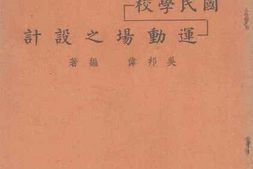 國民學校
運動場之設計
吳邦偉 編著